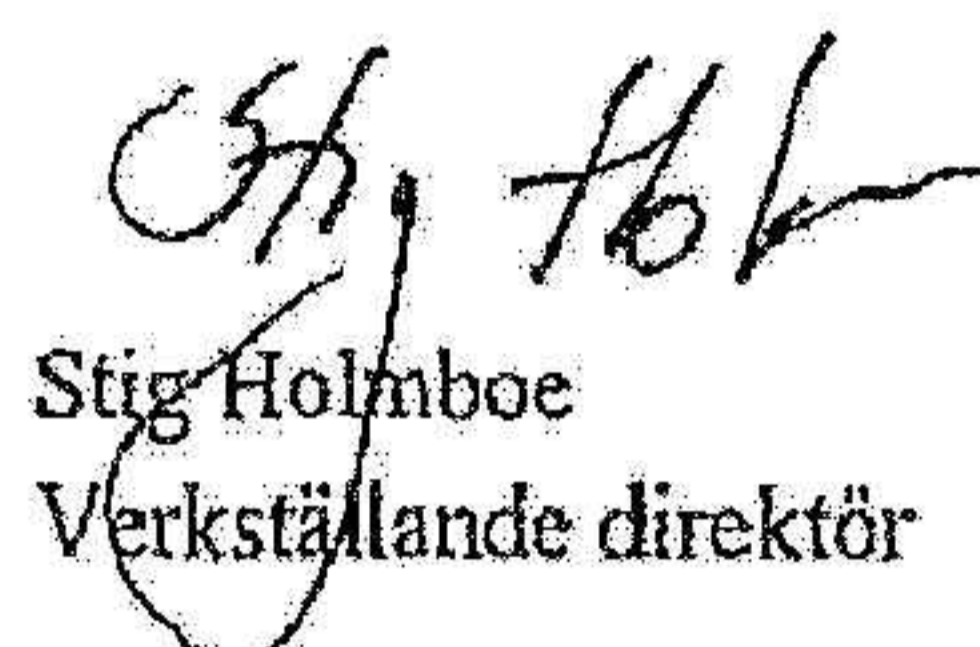 Stig Holmboe
Verkställande direktör